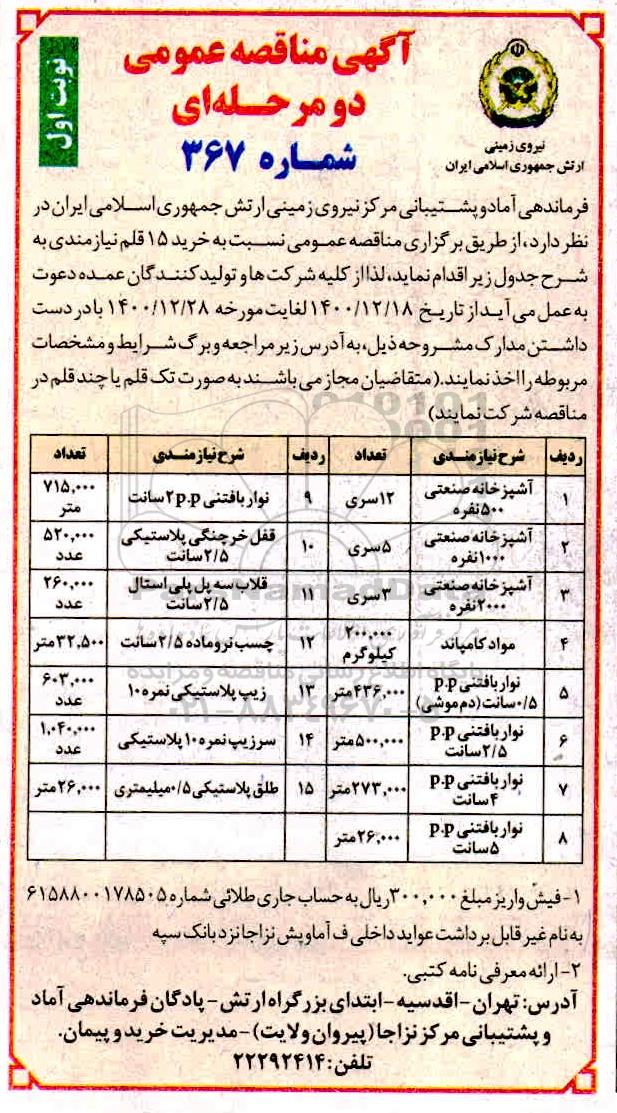 آگهی مناقصه عمومی
دو مرحله‌ای
شماره ۳۶۷
نوبت اول
نیروی زمینی
ارتش جمهوری اسلامی ایران
فرماندهی آماد و پشتیبانی مرکز نیروی زمینی ارتش جمهوری اسلامی ایران در
نظر دارد، از طریق برگزاری مناقصه عمومی نسبت به خرید ۱۵ قلم نیازمندی به
شرح جدول زیر اقدام نماید، لذا از کلیه شرکت ها و تولید کنندگان عمده دعوت
به عمل می آید از تاریخ ۱۴۰۰/۱۲/۱۸ لغایت مورخه ۱۴۰۰/۱۲/۲۸ با در دست
داشتن مدارک مشروحه ذیل، به آدرس زیر مراجعه و برگ شرایط و مشخصات
مربوطه را اخذ نمایند. (متقاضیان مجاز می باشند به صورت تک قلم یا چند قلم در
مناقصه شرکت نمایند)
ردیف | شرح نیازمندی | تعداد | ردیف | شرح نیازمندی | تعداد
۱ | آشپزخانه صنعتی ۵۰۰نفره | ۱۲سری | ۹ | نوار بافتنی p.p ۲سانت | ۷۱۵,۰۰۰ متر
۲ | آشپزخانه صنعتی ۱۰۰۰نفره | ۵سری | ۱۰ | قفل خرچنگی پلاستیکی ۲/۵سانت | ۵۲۰,۰۰۰ عدد
۳ | آشپزخانه صنعتی ۲۰۰۰نفره | ۳سری | ۱۱ | قلاب سه پل پلی استال ۲/۵سانت | ۲۶۰,۰۰۰ عدد
۴ | مواد کامپاند | ۲۰۰,۰۰۰ کیلوگرم | ۱۲ | چسب نر و ماده ۲/۵سانت | ۳۲,۵۰۰متر
۵ | نوار بافتنی p.p ۰/۵سانت (دم موشی) | ۴۳۶,۰۰۰متر | ۱۳ | زیپ پلاستیکی نمره ۱۰ | ۶۰۳,۰۰۰ عدد
۶ | نوار بافتنی p.p ۲/۵سانت | ۵۰۰,۰۰۰متر | ۱۴ | سرزیپ نمره ۱۰ پلاستیکی | ۱,۰۴۰,۰۰۰ عدد
۷ | نوار بافتنی p.p ۴سانت | ۲۷۳,۰۰۰متر | ۱۵ | طلق پلاستیکی ۰/۵میلیمتری | ۲۶,۰۰۰متر
۸ | نوار بافتنی p.p ۵سانت | ۲۶,۰۰۰متر
۱- فیش واریز مبلغ ۳۰۰,۰۰۰ریال به حساب جاری طلائی شماره ۶۱۵۸۸۰۰۱۷۸۵۰۵
به نام غیر قابل برداشت عواید داخلی ف آماوپش نزاجا نزد بانک سپه
۲- ارائه معرفی نامه کتبی.
آدرس: تهران - اقدسیه - ابتدای بزرگراه ارتش - پادگان فرماندهی آماد
و پشتیبانی مرکز نزاجا (پیروان ولایت) - مدیریت خرید و پیمان.
تلفن: ۲۲۲۹۲۴۱۴
ParsNamadData
پایگاه اطلاع رسانی مناقصه و مزایده
۰۲۱-۸۸۳۴۹۶۷۰-۵